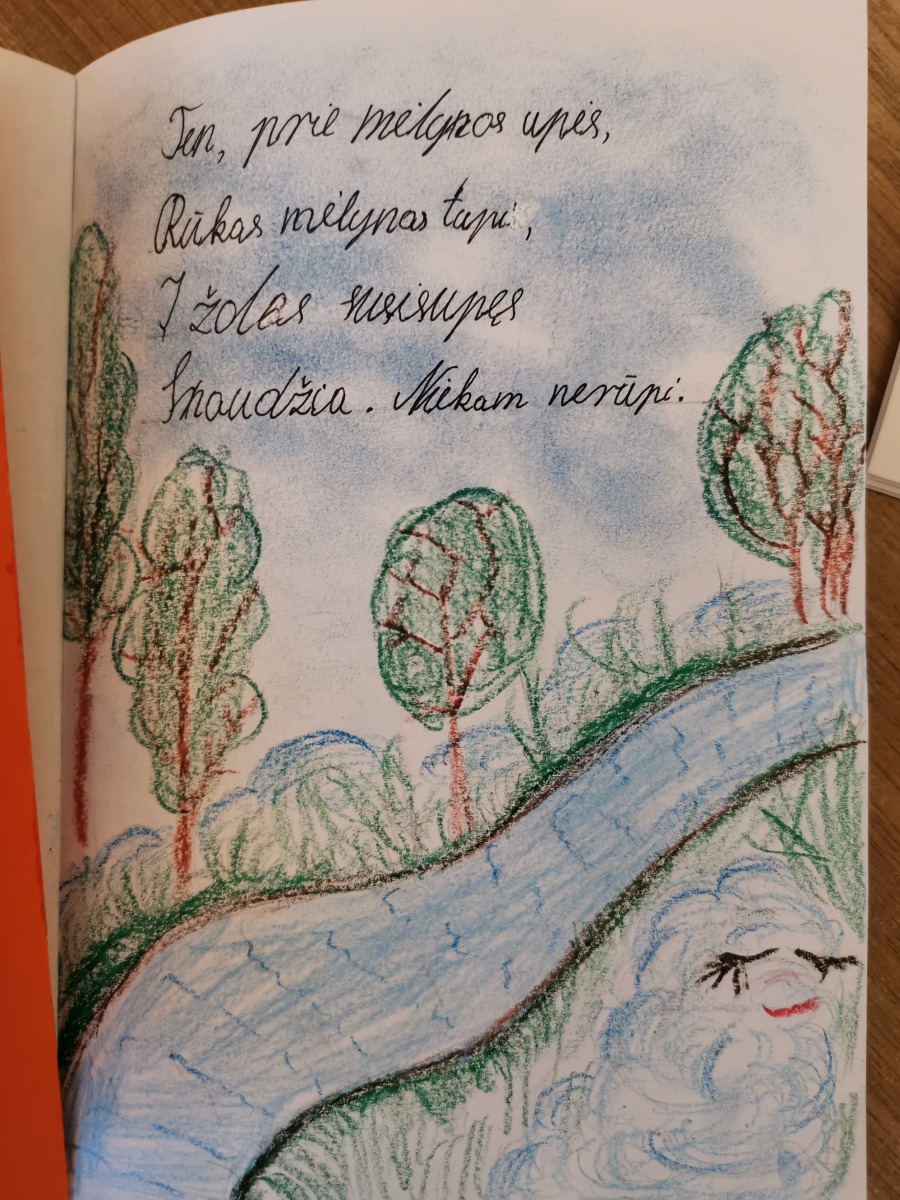 Ten, prie mėlynos upės,
Rūkas mėlynas tupi,
Į žoles susisupęs
Snaudžia. Niekam nerūpi.